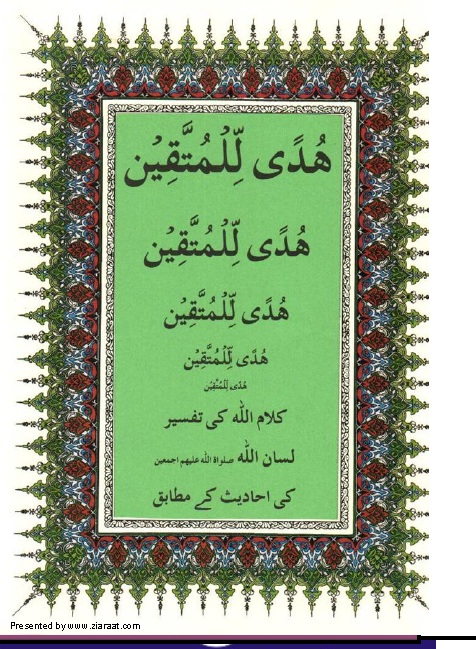 هُدًى لِّلْمُتَّقِيْن
هُدًى لِّلْمُتَّقِيْن
هُدًى لِّلْمُتَّقِيْن
هُدًى لِّلْمُتَّقِيْن
هُدًى لِّلْمُتَّقِيْن
کلام اللہ کی تفسیر
لسان اللہ صلواۃ اللہ علیہم اجمعین
کی احادیث کے مطابق
Presented by www.ziaraat.com